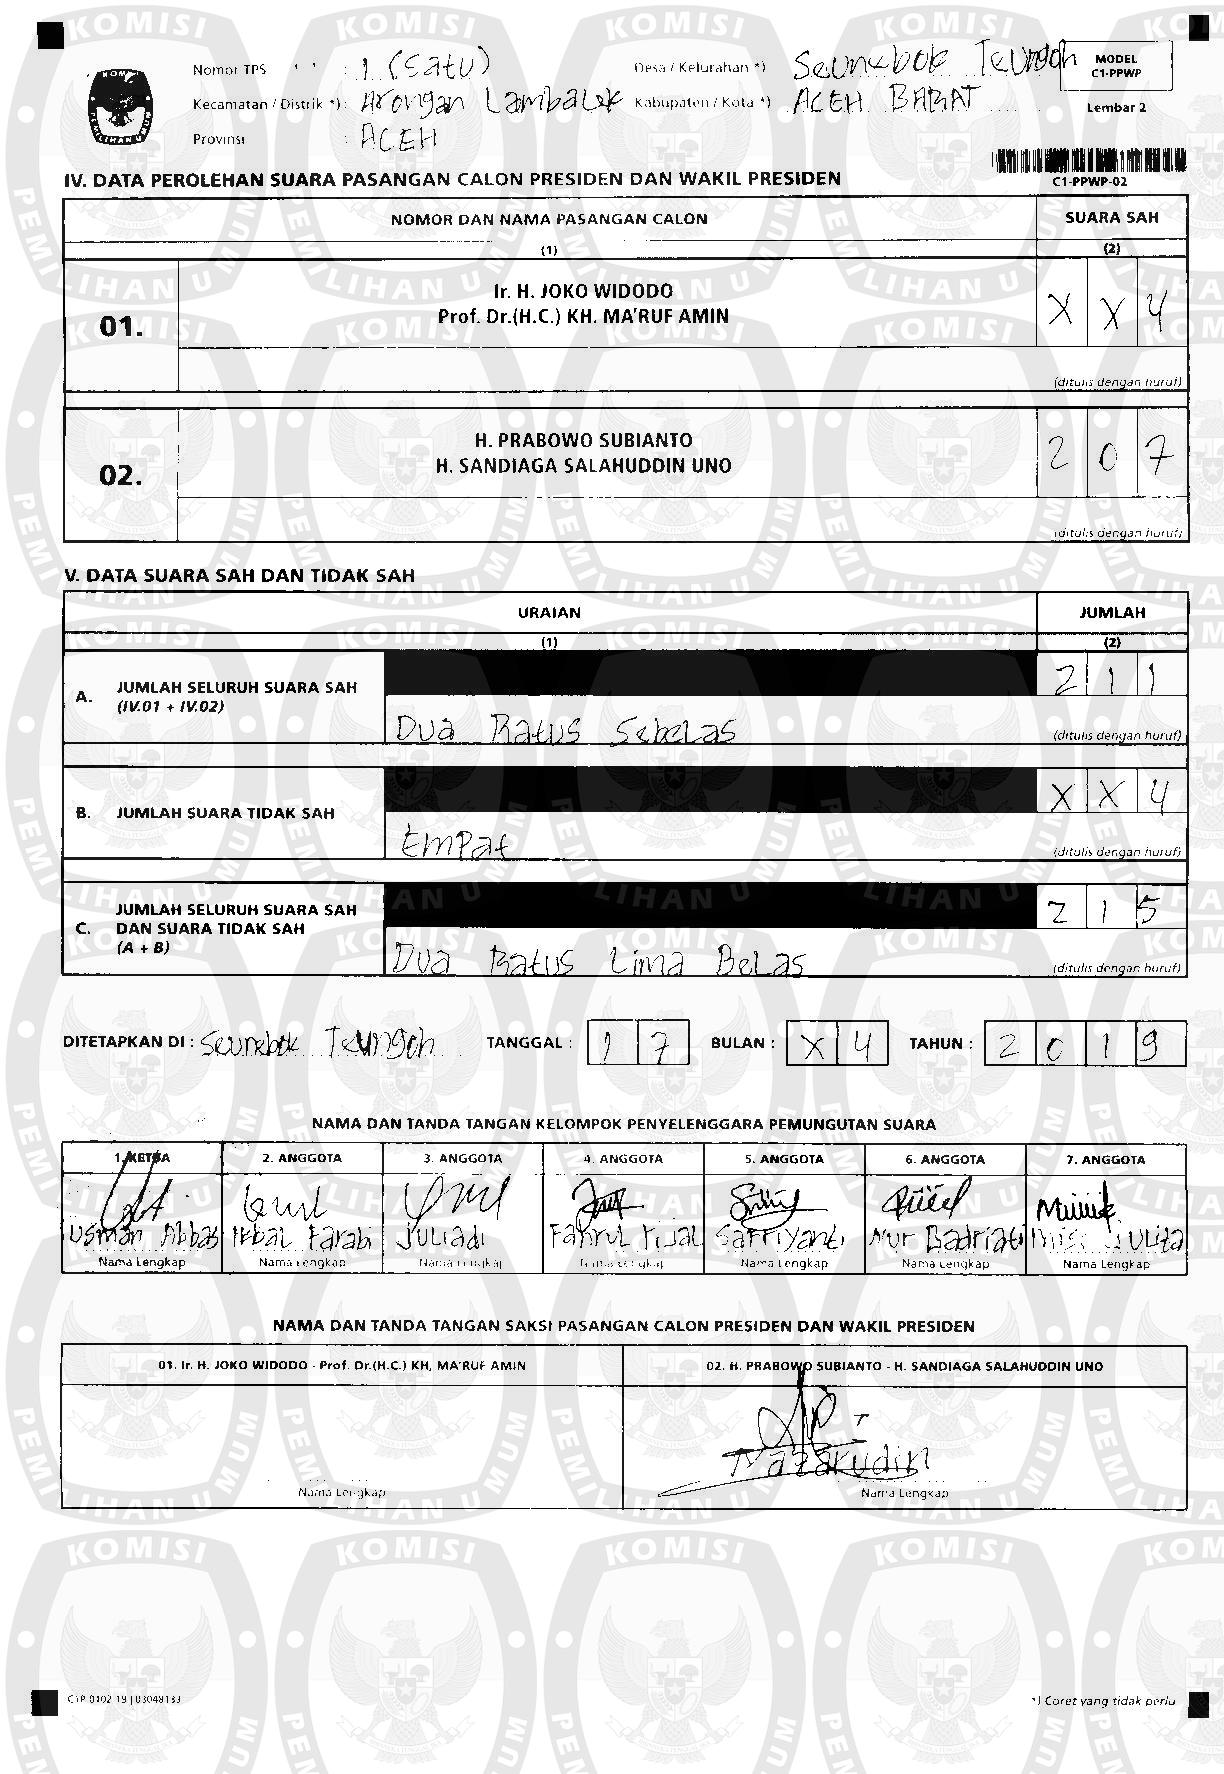 Nomor TPS : 1 (Satu) Desa / Kelurahan *) Seunebok Teungoh MODEL C1-PPWP
Kecamatan / Distrik *) : Arongan Lambalek Kabupaten / Kota *) ACEH BARAT Lembar 2
Provinsi : ACEH
IV. DATA PEROLEHAN SUARA PASANGAN CALON PRESIDEN DAN WAKIL PRESIDEN C1-PPWP-02
NOMOR DAN NAMA PASANGAN CALON SUARA SAH
(1) (2)
01. Ir. H. JOKO WIDODO
Prof. Dr.(H.C.) KH. MA'RUF AMIN X X 4
(ditulis dengan huruf)
02. H. PRABOWO SUBIANTO
H. SANDIAGA SALAHUDDIN UNO 2 0 7
(ditulis dengan huruf)
V. DATA SUARA SAH DAN TIDAK SAH
URAIAN JUMLAH
(1) (2)
A. JUMLAH SELURUH SUARA SAH
(IV.01 + IV.02) 2 1 1
Dua Ratus Sebelas (ditulis dengan huruf)
B. JUMLAH SUARA TIDAK SAH X X 4
Empat (ditulis dengan huruf)
C. JUMLAH SELURUH SUARA SAH
DAN SUARA TIDAK SAH
(A + B) 2 1 5
Dua Ratus Lima Belas (ditulis dengan huruf)
DITETAPKAN DI : Seunebok Teungoh TANGGAL : 1 7 BULAN : X 4 TAHUN : 2 0 1 9
NAMA DAN TANDA TANGAN KELOMPOK PENYELENGGARA PEMUNGUTAN SUARA
1. KETUA 2. ANGGOTA 3. ANGGOTA 4. ANGGOTA 5. ANGGOTA 6. ANGGOTA 7. ANGGOTA
Usman Abbas Ikbal Farabi Juliadi Fahrul Rijal Safriyanti Nur Badriati Misi Yulita
Nama Lengkap Nama Lengkap Nama Lengkap Nama Lengkap Nama Lengkap Nama Lengkap Nama Lengkap
NAMA DAN TANDA TANGAN SAKSI PASANGAN CALON PRESIDEN DAN WAKIL PRESIDEN
01. Ir. H. JOKO WIDODO - Prof. Dr.(H.C.) KH, MA'RUF AMIN 02. H. PRABOWO SUBIANTO - H. SANDIAGA SALAHUDDIN UNO
Nazarudin
Nama Lengkap Nama Lengkap
*) Coret yang tidak perlu